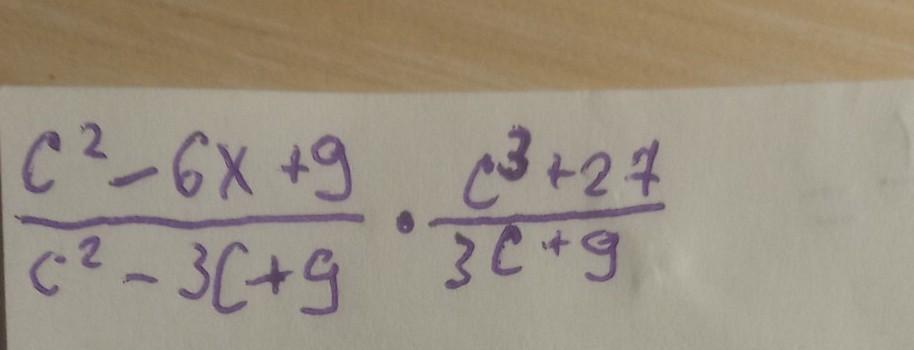 c² - 6x + 9 / c² - 3c + 9 · c³ + 27 / 3c + 9